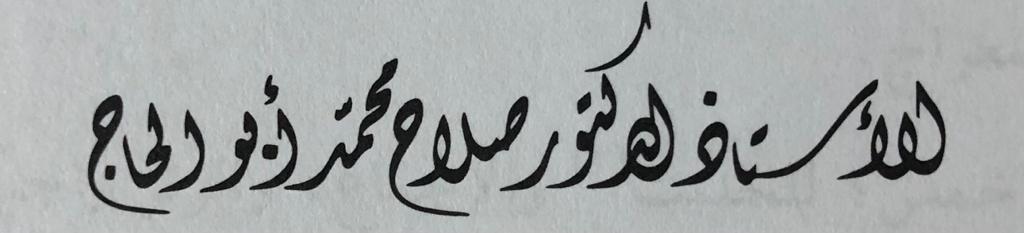 الأستاذ الدكتور صلاح محمّد أبو الحاج